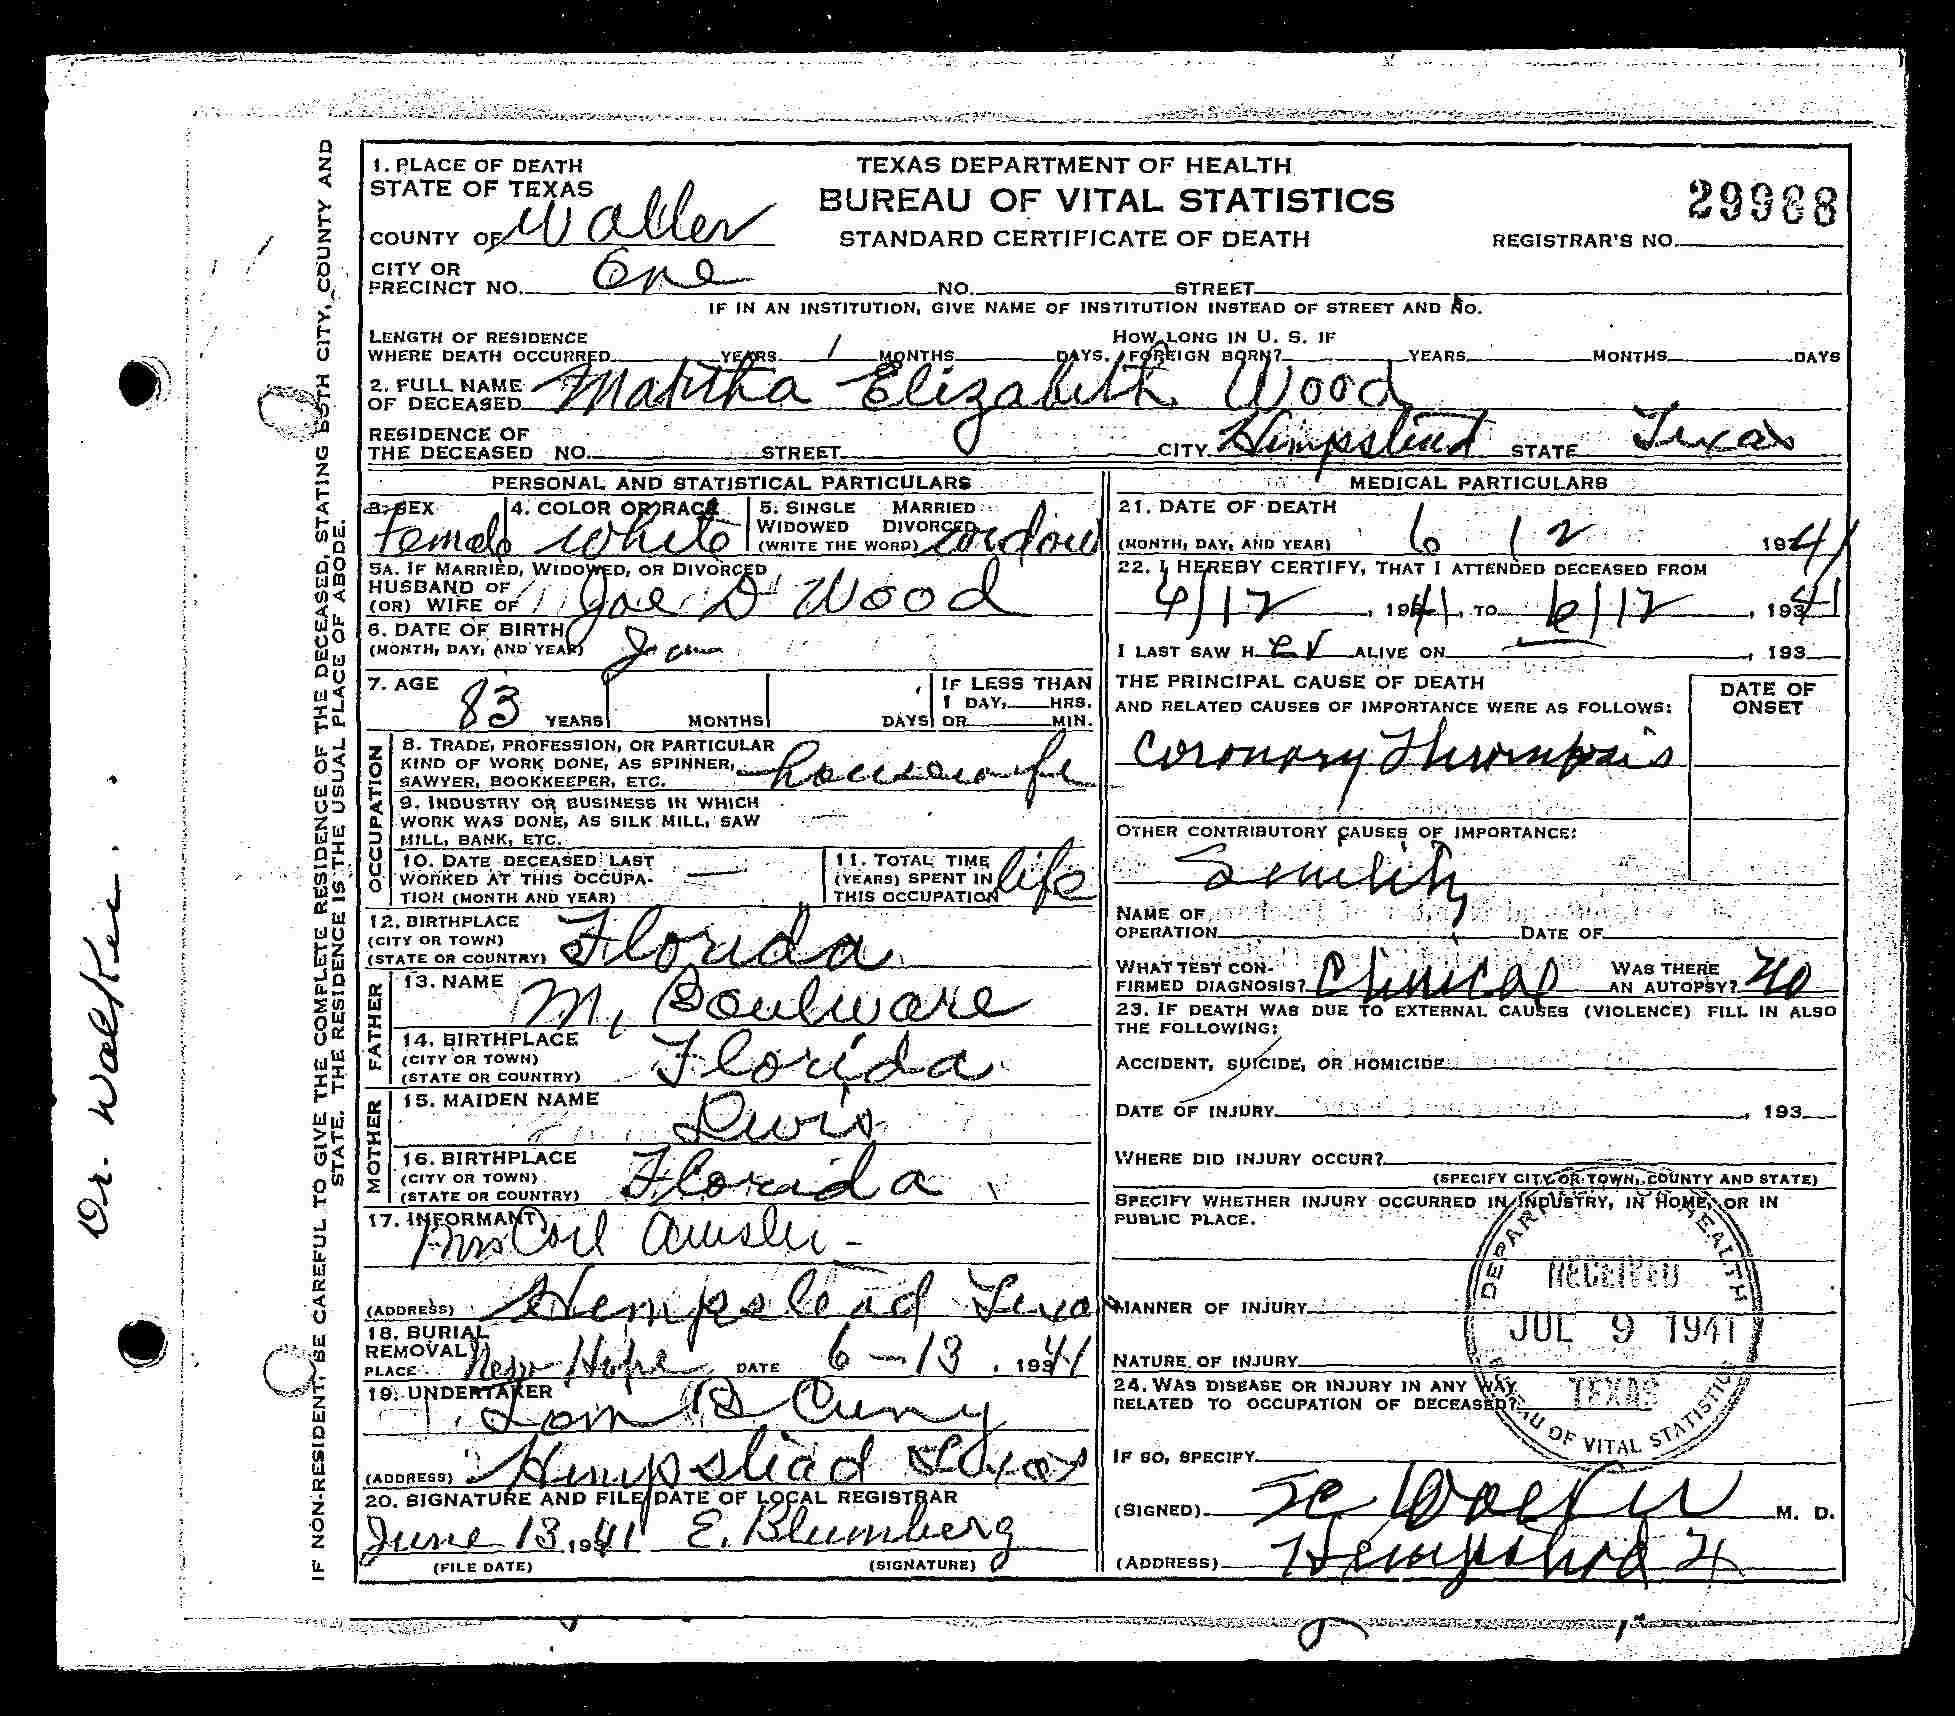 IF NON-RESIDENT, BE CAREFUL TO GIVE THE COMPLETE RESIDENCE OF THE DECEASED, STATING BOTH CITY, COUNTY AND
STATE. THE RESIDENCE IS THE USUAL PLACE OF ABODE.
Dr. Walker
1. PLACE OF DEATH
STATE OF TEXAS
COUNTY OF Waller
TEXAS DEPARTMENT OF HEALTH
BUREAU OF VITAL STATISTICS
STANDARD CERTIFICATE OF DEATH
29988
REGISTRAR'S NO.
CITY OR
PRECINCT NO. One NO. STREET
IF IN AN INSTITUTION, GIVE NAME OF INSTITUTION INSTEAD OF STREET AND NO.
LENGTH OF RESIDENCE HOW LONG IN U. S. IF
WHERE DEATH OCCURRED YEARS 1 MONTHS DAYS. FOREIGN BORN? YEARS MONTHS DAYS
2. FULL NAME
OF DECEASED Martha Elizabeth Wood
RESIDENCE OF
THE DECEASED NO. STREET CITY Hempstead STATE Texas
PERSONAL AND STATISTICAL PARTICULARS
3. SEX Female
4. COLOR OR RACE white
5. SINGLE MARRIED
WIDOWED DIVORCED
(WRITE THE WORD) widow
5A. IF MARRIED, WIDOWED, OR DIVORCED
HUSBAND OF
(OR) WIFE OF Joe D Wood
6. DATE OF BIRTH
(MONTH, DAY, AND YEAR) Jan
7. AGE 83 YEARS MONTHS DAYS
IF LESS THAN
1 DAY, HRS.
OR MIN.
OCCUPATION
8. TRADE, PROFESSION, OR PARTICULAR
KIND OF WORK DONE, AS SPINNER,
SAWYER, BOOKKEEPER, ETC. housewife
9. INDUSTRY OR BUSINESS IN WHICH
WORK WAS DONE, AS SILK MILL, SAW
MILL, BANK, ETC. —
10. DATE DECEASED LAST
WORKED AT THIS OCCUPA-
TION (MONTH AND YEAR) —
11. TOTAL TIME
(YEARS) SPENT IN
THIS OCCUPATION life
12. BIRTHPLACE
(CITY OR TOWN)
(STATE OR COUNTRY) Florida
FATHER
13. NAME M. Boulware
14. BIRTHPLACE
(CITY OR TOWN)
(STATE OR COUNTRY) Florida
MOTHER
15. MAIDEN NAME Lewis
16. BIRTHPLACE
(CITY OR TOWN)
(STATE OR COUNTRY) Florida
17. INFORMANT Mrs
(ADDRESS) Hempstead Texas
18. BURIAL
REMOVAL
PLACE New Hope DATE 6-13, 1941
19. UNDERTAKER
Tom B Cuny
(ADDRESS) Hempstead Texas
20. SIGNATURE AND FILE DATE OF LOCAL REGISTRAR
June 13, 1941 E. Blumberg
(FILE DATE) (SIGNATURE)
MEDICAL PARTICULARS
21. DATE OF DEATH
(MONTH, DAY, AND YEAR) 6 12 1941
22. I HEREBY CERTIFY, THAT I ATTENDED DECEASED FROM
4/12, 1941, TO 6/12, 1941
I LAST SAW H er ALIVE ON — , 193
THE PRINCIPAL CAUSE OF DEATH
AND RELATED CAUSES OF IMPORTANCE WERE AS FOLLOWS:
DATE OF
ONSET
Coronary
OTHER CONTRIBUTORY CAUSES OF IMPORTANCE:
Senility
NAME OF
OPERATION DATE OF
WHAT TEST CON-
FIRMED DIAGNOSIS? Clinical
WAS THERE
AN AUTOPSY? no
23. IF DEATH WAS DUE TO EXTERNAL CAUSES (VIOLENCE) FILL IN ALSO
THE FOLLOWING:
ACCIDENT, SUICIDE, OR HOMICIDE
DATE OF INJURY , 193
WHERE DID INJURY OCCUR?
(SPECIFY CITY OR TOWN, COUNTY AND STATE)
SPECIFY WHETHER INJURY OCCURRED IN INDUSTRY, IN HOME, OR IN
PUBLIC PLACE.
MANNER OF INJURY
NATURE OF INJURY
24. WAS DISEASE OR INJURY IN ANY WAY
RELATED TO OCCUPATION OF DECEASED?
IF SO, SPECIFY
(SIGNED) Walker M. D.
(ADDRESS) Hempstead Tx
DEPARTMENT OF HEALTH
RECEIVED
JUL 9 1941
TEXAS
BUREAU OF VITAL STATISTICS